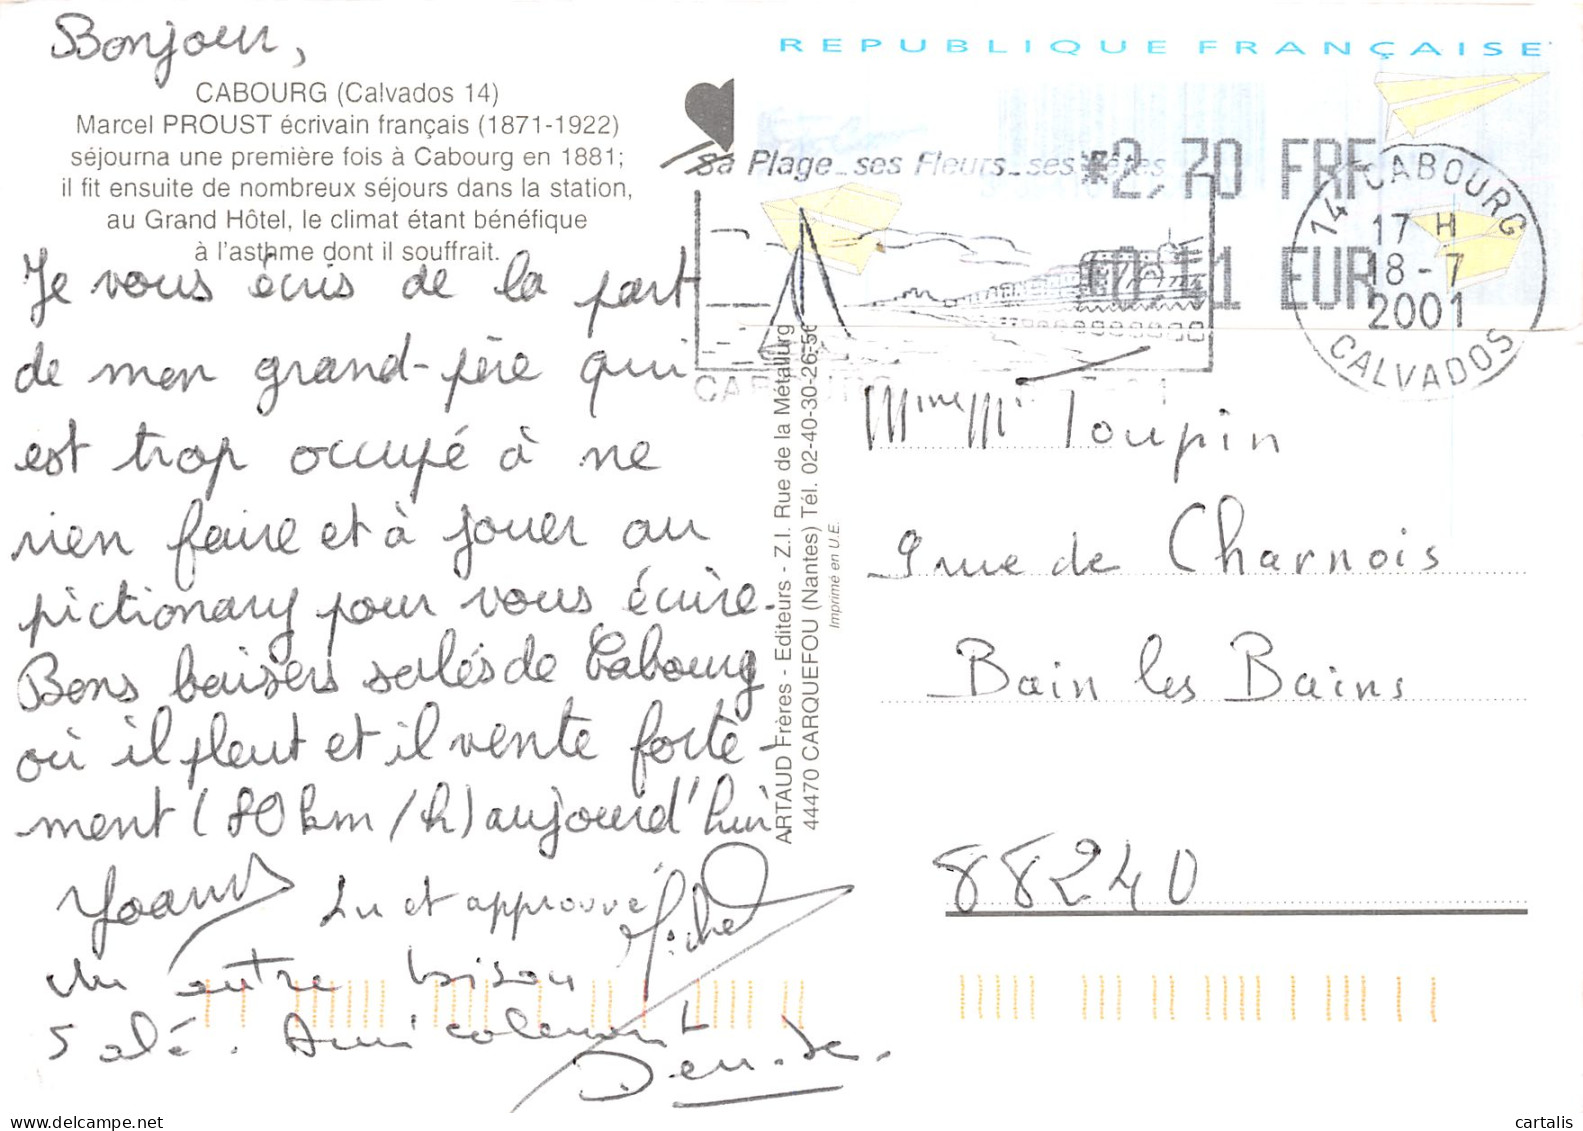 Bonjour,
CABOURG (Calvados 14)
Marcel PROUST écrivain français (1871-1922)
séjourna une première fois à Cabourg en 1881;
il fit ensuite de nombreux séjours dans la station,
au Grand Hôtel, le climat étant bénéfique
à l'asthme dont il souffrait.
Je vous écris de la part
de mon grand-père qui
est trop occupé à ne
rien faire et à jouer au
pictionary pour vous écrire.
Bons baisers salés de Cabourg
où il pleut et il vente forte-
ment (80 km/h) aujourd'hui
Yoann
Lu et approuvé Michel
Un autre bisou
salé. Amicalement
Denise.
ARTAUD Frères - Editeurs - Z.I. Rue de la Métallurg
44470 CARQUEFOU (Nantes) Tél. 02-40-30-26-50
Imprimé en U.E.
REPUBLIQUE FRANÇAISE
Sa Plage_ses Fleurs_ses Fêtes
*2,70 FRF
0,41 EUR
14 CABOURG
17 H
18-7
2001
CALVADOS
CABOURG
Mme Mr Toupin
9 rue de Charnois
Bain les Bains
88240
cartalis